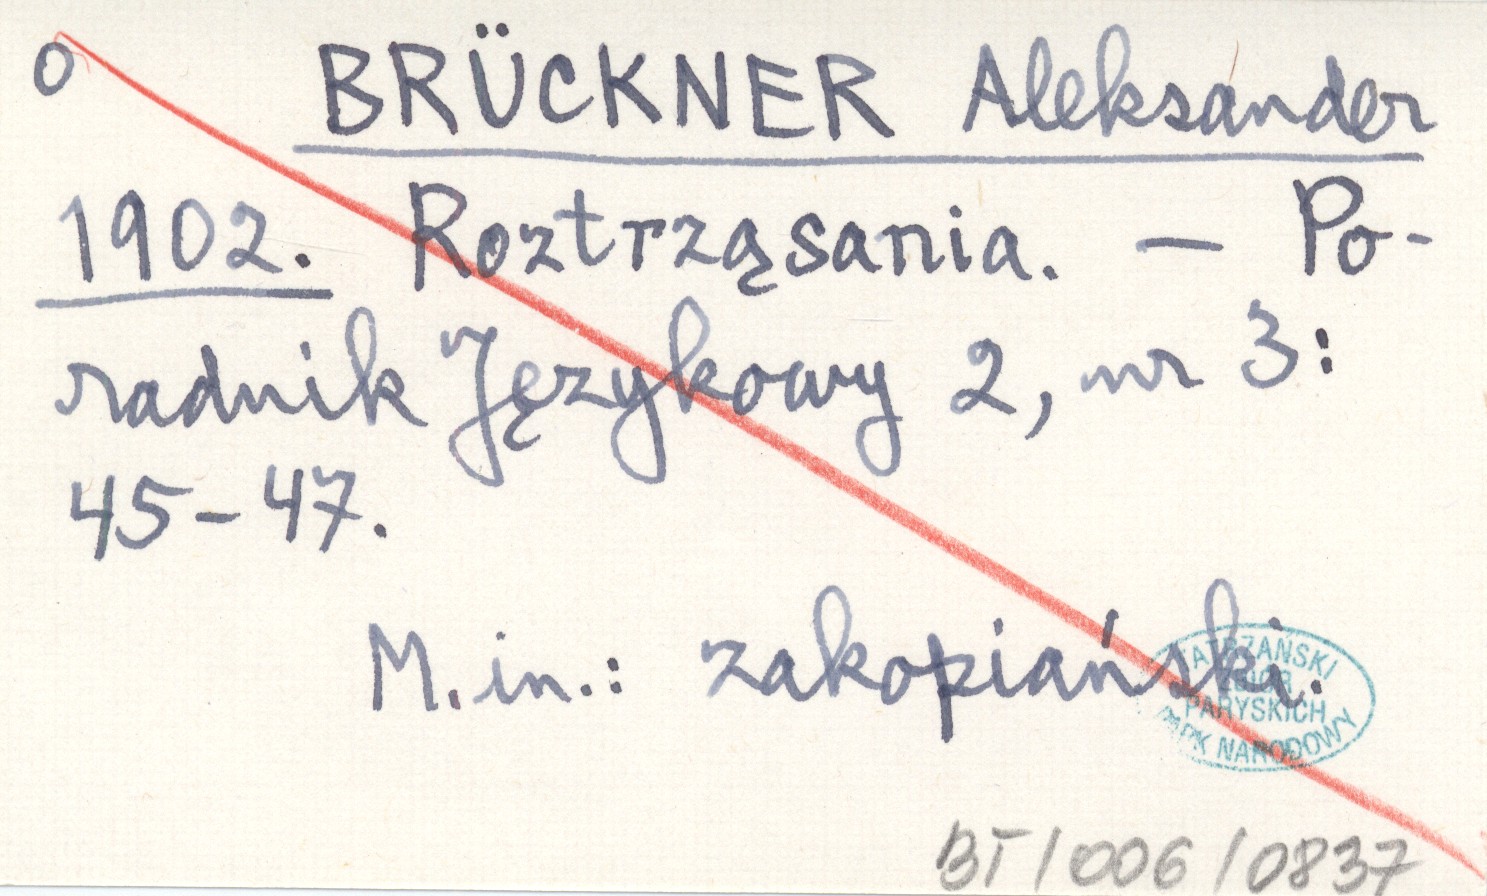 o BRÜCKNER Aleksander
1902. Roztrząsania. — Po-
radnik Językowy 2, nr 3:
45-47.
M.in.: zakopiański.
TATRZAŃSKI
ZBIÓR
PARYSKICH
PARK NARODOWY
BT/006/0837